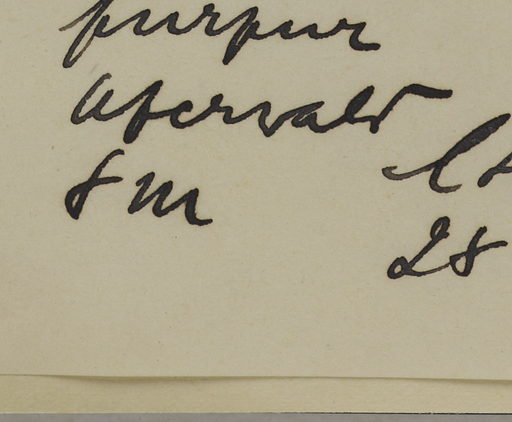 purpur
Uferwald
8 m
28